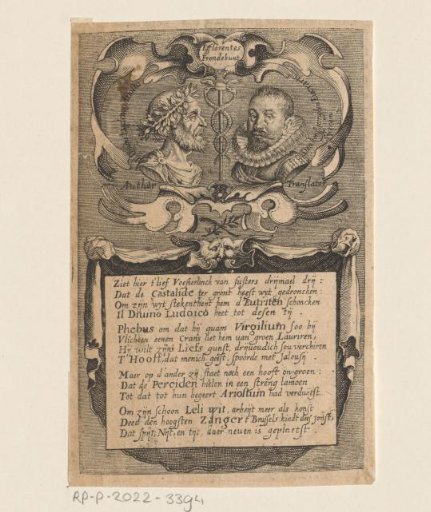 Eflorentes
Frondebunt
Author
Translater
Ziet hier t'lief Voesterlinck van susters drijmael drij:
Dat de Castalide ter gront heeft wyt gedroncken:
Om zijn wyt stekenthent hem d'Eutriten schoncken
Il Divino Ludoico heet tot desen tij.
Phebus om dat hij quam Virgilium soo bij
Vlichten eenen Crans liet hem van groen Lauriren,
Hij wilt zijns Liefs gunst, drijwoudich sou vercieren
T'Hooft, dat menich geest, spoorde met Jalousij
Maer op d'ander zij staet noch een hooft ongroen:
Dat de Pereiden hilden in een streng lamoen
Tot dat tot hun begeert Ariostum had verduijst.
Om zijn schoon Leli wit, arbeijt meer als konst
Deed den hoogsten Zanger t'Brussels kindt dees jonst,
Dat spijt, Nijt, en tijt, daer neven is geplaetst.
RP-P-2022-3394